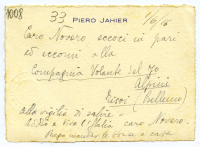 1008
33 PIERO JAHIER 1/6/16
Caro Novaro eccoci in pari
ed eccomi alla
Compagnia Volante del 7o
Alpini
(Belluno)
alla vigilia di salire.
e viva l'Italia caro Novaro.
Prego mandar le a casa